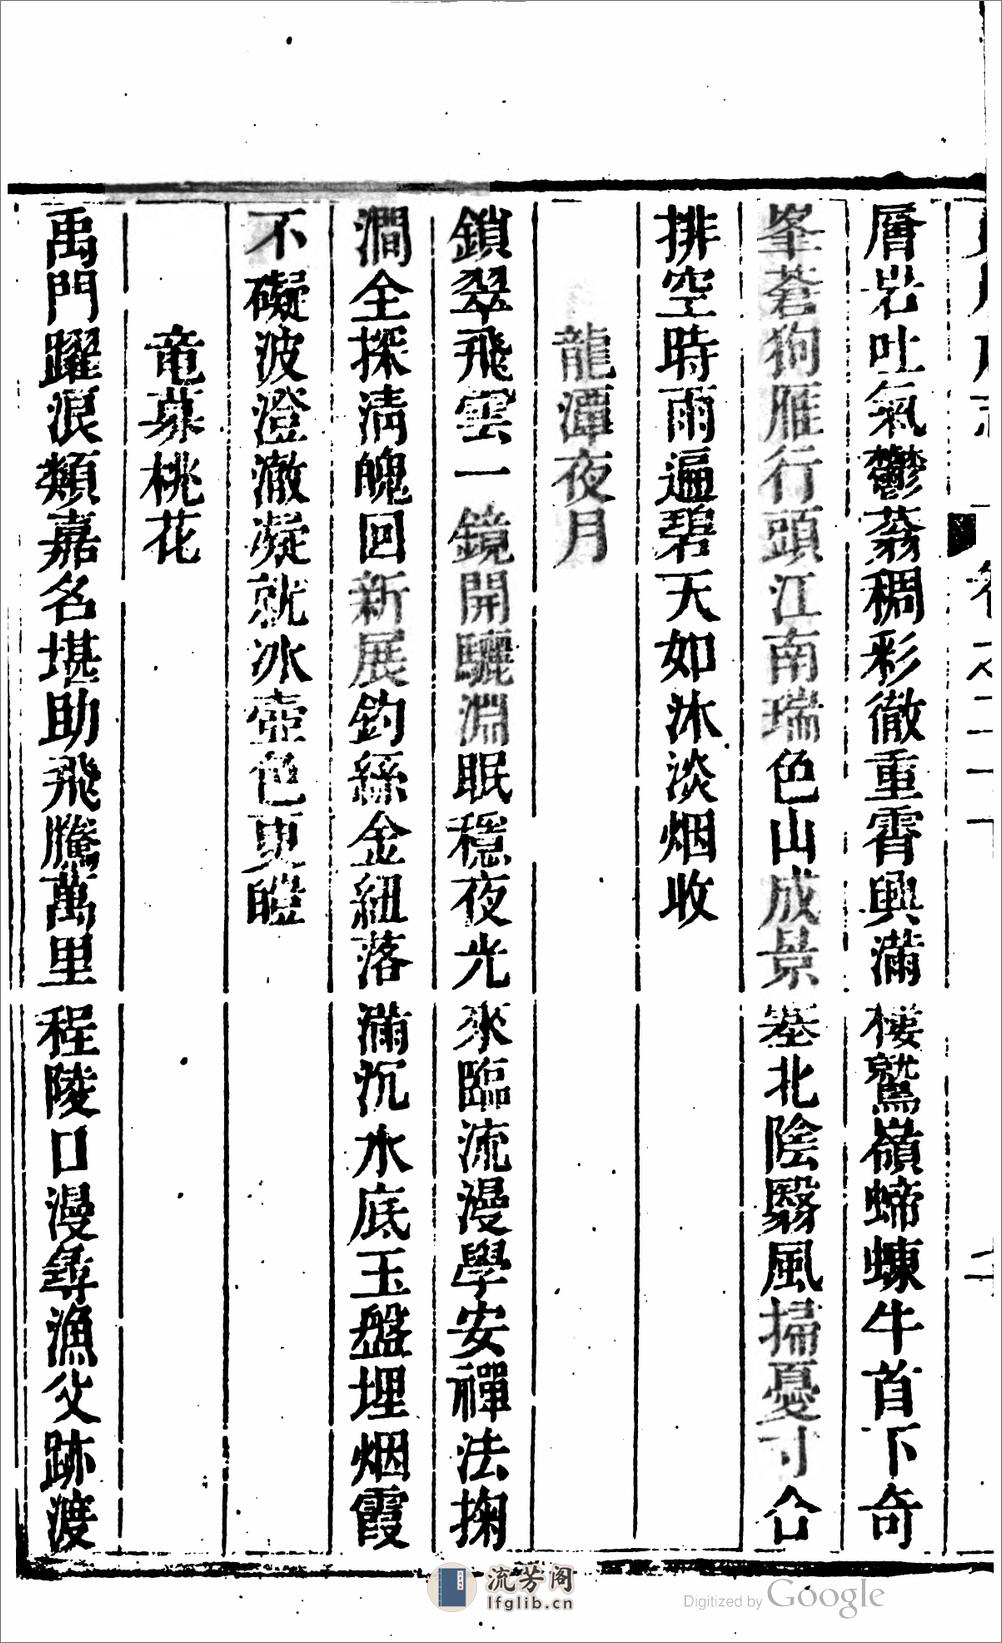 卷之二十一 二
層岩吐氣鬱蓊稠彩徹重霄興滿樓鷲嶺蝃蝀牛首下奇
峯蒼狗雁行頭江南瑞色山成景塞北陰翳風掃憂寸合
排空時雨遍碧天如沐淡烟收
龍潭夜月
鎖翠飛雲一鏡開驪淵眠穩夜光來臨流漫學安禪法掬
澗全探清魄回新展鈎絲金紐落滿沉水底玉盤埋烟霞
不礙波澄澈凝就冰壺色更皚
竜墓桃花
禹門躍浪類嘉名堪助飛騰萬里程陵口漫尋漁父跡渡
流芳阁
lfglib.cn
Digitized by Google